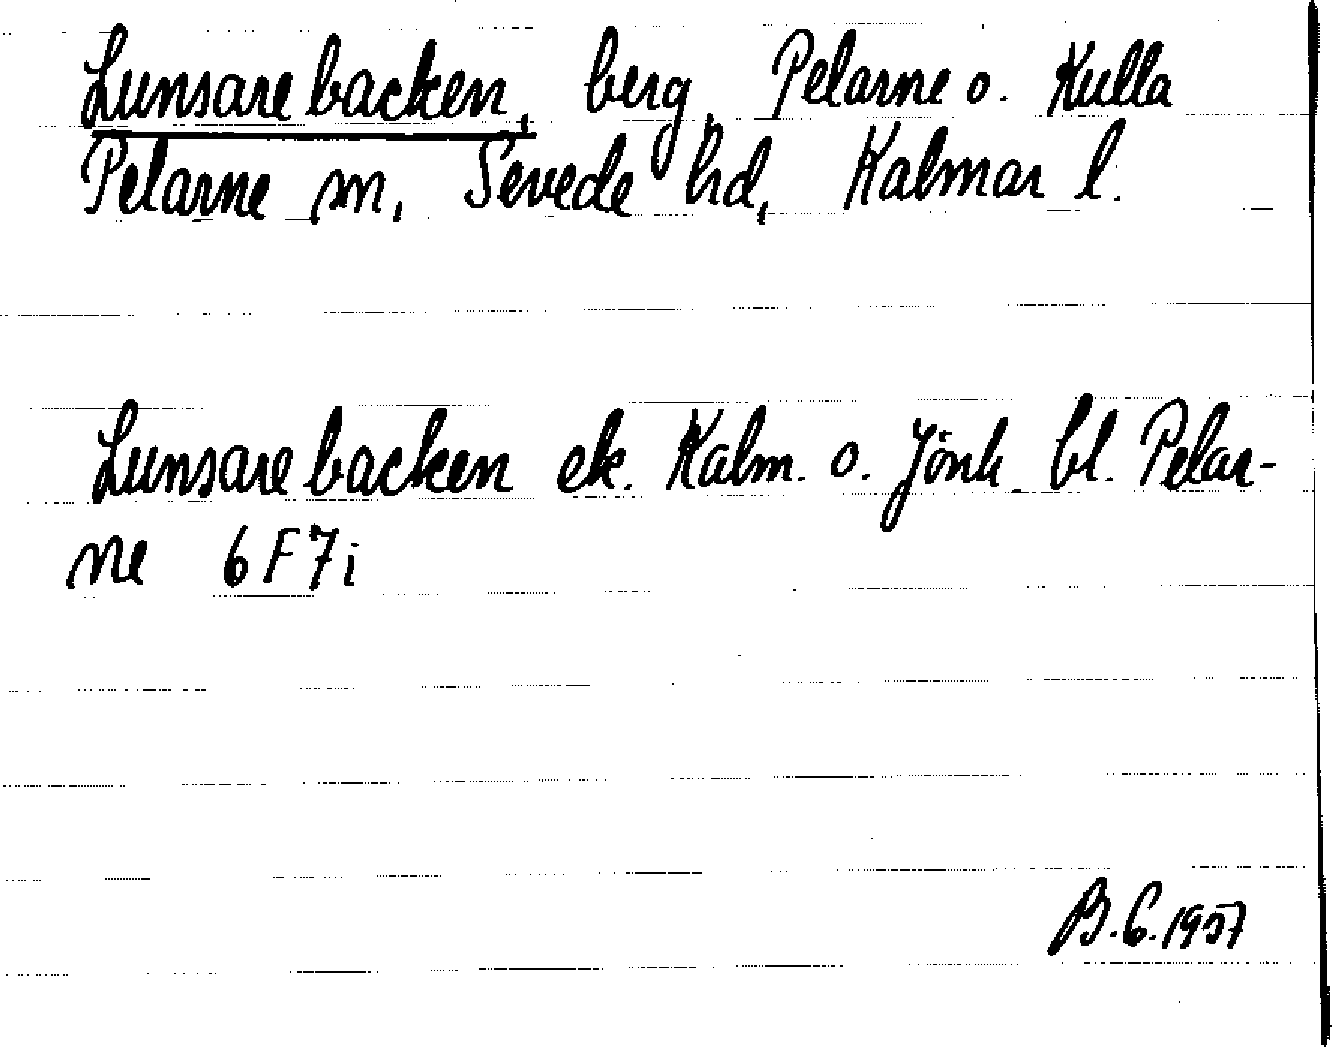 Lunsarebacken, berg, Pelarne o. Kulla
Pelarne sn, Sevede hd, Kalmar l.
Lunsarebacken ek. Kalm. o. Jönk. bl. Pelar-
ne 6F7i
B.G.1957